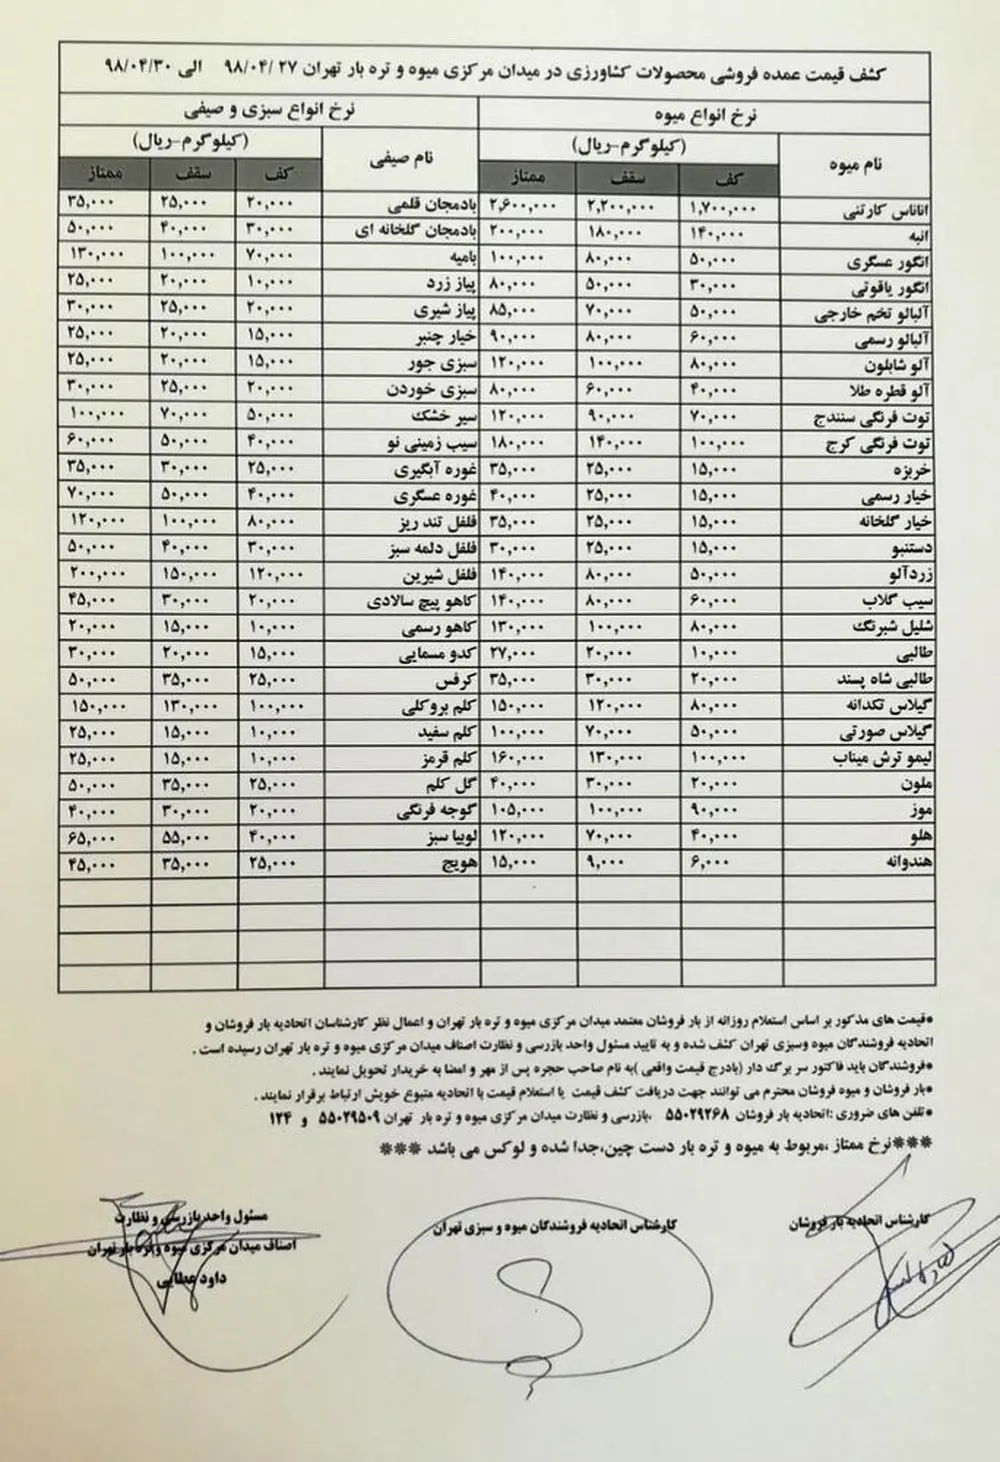 کشف قیمت عمده فروشی محصولات کشاورزی در میدان مرکزی میوه و تره بار تهران ۲۷ /۹۸/۰۴ الی ۹۸/۰۴/۳۰
نرخ انواع میوه نرخ انواع سبزی و صیفی
نام میوه (کیلوگرم-ریال) نام صیفی (کیلوگرم-ریال)
کف سقف ممتاز کف سقف ممتاز
اناناس کارتنی ۱,۷۰۰,۰۰۰ ۲,۲۰۰,۰۰۰ ۲,۶۰۰,۰۰۰ بادمجان قلمی ۲۰,۰۰۰ ۲۵,۰۰۰ ۳۵,۰۰۰
انبه ۱۴۰,۰۰۰ ۱۸۰,۰۰۰ ۲۰۰,۰۰۰ بادمجان گلخانه ای ۳۰,۰۰۰ ۴۰,۰۰۰ ۵۰,۰۰۰
انگور عسگری ۵۰,۰۰۰ ۸۰,۰۰۰ ۱۰۰,۰۰۰ بامیه ۷۰,۰۰۰ ۱۰۰,۰۰۰ ۱۳۰,۰۰۰
انگور یاقوتی ۳۰,۰۰۰ ۵۰,۰۰۰ ۸۰,۰۰۰ پیاز زرد ۱۰,۰۰۰ ۲۰,۰۰۰ ۲۵,۰۰۰
آلبالو تخم خارجی ۵۰,۰۰۰ ۷۰,۰۰۰ ۸۵,۰۰۰ پیاز شیری ۲۰,۰۰۰ ۲۵,۰۰۰ ۳۰,۰۰۰
آلبالو رسمی ۶۰,۰۰۰ ۸۰,۰۰۰ ۹۰,۰۰۰ خیار چنبر ۱۵,۰۰۰ ۲۰,۰۰۰ ۲۵,۰۰۰
آلو شابلون ۸۰,۰۰۰ ۱۰۰,۰۰۰ ۱۲۰,۰۰۰ سبزی جور ۱۵,۰۰۰ ۲۰,۰۰۰ ۲۵,۰۰۰
آلو قطره طلا ۴۰,۰۰۰ ۶۰,۰۰۰ ۸۰,۰۰۰ سبزی خوردن ۲۰,۰۰۰ ۲۵,۰۰۰ ۳۰,۰۰۰
توت فرنگی سنندج ۷۰,۰۰۰ ۹۰,۰۰۰ ۱۲۰,۰۰۰ سیر خشک ۵۰,۰۰۰ ۷۰,۰۰۰ ۱۰۰,۰۰۰
توت فرنگی کرج ۱۰۰,۰۰۰ ۱۴۰,۰۰۰ ۱۸۰,۰۰۰ سیب زمینی نو ۴۰,۰۰۰ ۵۰,۰۰۰ ۶۰,۰۰۰
خربزه ۱۵,۰۰۰ ۲۵,۰۰۰ ۳۵,۰۰۰ غوره آبگیری ۲۵,۰۰۰ ۳۰,۰۰۰ ۳۵,۰۰۰
خیار رسمی ۱۵,۰۰۰ ۲۵,۰۰۰ ۴۰,۰۰۰ غوره عسگری ۴۰,۰۰۰ ۵۰,۰۰۰ ۷۰,۰۰۰
خیار گلخانه ۱۵,۰۰۰ ۲۵,۰۰۰ ۳۵,۰۰۰ فلفل تند ریز ۸۰,۰۰۰ ۱۰۰,۰۰۰ ۱۲۰,۰۰۰
دستنبو ۱۵,۰۰۰ ۲۵,۰۰۰ ۳۰,۰۰۰ فلفل دلمه سبز ۳۰,۰۰۰ ۴۰,۰۰۰ ۵۰,۰۰۰
زردآلو ۵۰,۰۰۰ ۸۰,۰۰۰ ۱۴۰,۰۰۰ فلفل شیرین ۱۲۰,۰۰۰ ۱۵۰,۰۰۰ ۲۰۰,۰۰۰
سیب گلاب ۶۰,۰۰۰ ۸۰,۰۰۰ ۱۴۰,۰۰۰ کاهو پیچ سالادی ۲۰,۰۰۰ ۳۰,۰۰۰ ۴۵,۰۰۰
شلیل شبرنگ ۸۰,۰۰۰ ۱۰۰,۰۰۰ ۱۳۰,۰۰۰ کاهو رسمی ۱۰,۰۰۰ ۱۵,۰۰۰ ۲۰,۰۰۰
طالبی ۱۰,۰۰۰ ۲۰,۰۰۰ ۲۷,۰۰۰ کدو مسمایی ۱۵,۰۰۰ ۲۰,۰۰۰ ۳۰,۰۰۰
طالبی شاه پسند ۲۰,۰۰۰ ۳۰,۰۰۰ ۳۵,۰۰۰ کرفس ۲۵,۰۰۰ ۳۵,۰۰۰ ۵۰,۰۰۰
گیلاس تکدانه ۸۰,۰۰۰ ۱۲۰,۰۰۰ ۱۵۰,۰۰۰ کلم بروکلی ۱۰۰,۰۰۰ ۱۳۰,۰۰۰ ۱۵۰,۰۰۰
گیلاس صورتی ۵۰,۰۰۰ ۷۰,۰۰۰ ۱۰۰,۰۰۰ کلم سفید ۱۰,۰۰۰ ۱۵,۰۰۰ ۲۵,۰۰۰
لیمو ترش میناب ۱۰۰,۰۰۰ ۱۳۰,۰۰۰ ۱۶۰,۰۰۰ کلم قرمز ۱۰,۰۰۰ ۱۵,۰۰۰ ۲۵,۰۰۰
ملون ۲۰,۰۰۰ ۳۰,۰۰۰ ۴۰,۰۰۰ گل کلم ۲۵,۰۰۰ ۳۵,۰۰۰ ۵۰,۰۰۰
موز ۹۰,۰۰۰ ۱۰۰,۰۰۰ ۱۰۵,۰۰۰ گوجه فرنگی ۲۰,۰۰۰ ۳۰,۰۰۰ ۴۰,۰۰۰
هلو ۴۰,۰۰۰ ۷۰,۰۰۰ ۱۲۰,۰۰۰ لوبیا سبز ۴۰,۰۰۰ ۵۵,۰۰۰ ۶۵,۰۰۰
هندوانه ۶,۰۰۰ ۹,۰۰۰ ۱۵,۰۰۰ هویج ۲۵,۰۰۰ ۳۵,۰۰۰ ۴۵,۰۰۰
*قیمت های مذکور بر اساس استعلام روزانه از بار فروشان معتمد میدان مرکزی میوه و تره بار تهران و اعمال نظر کارشناسان اتحادیه بار فروشان و
اتحادیه فروشندگان میوه وسبزی تهران کشف شده و به تایید مسئول واحد بازرسی و نظارت اصناف میدان مرکزی میوه و تره بار تهران رسیده است .
*فروشندگان باید فاکتور سر برگ دار (بادرج قیمت واقعی )به نام صاحب حجره پس از مهر و امضا به خریدار تحویل نمایند .
*بار فروشان و میوه فروشان محترم می توانند جهت دریافت کشف قیمت یا استعلام قیمت با اتحادیه متبوع خویش ارتباط برقرار نمایند .
*تلفن های ضروری :اتحادیه بار فروشان ۵۵۰۲۹۲۶۸ ،بازرسی و نظارت میدان مرکزی میوه و تره بار تهران ۵۵۰۲۹۵۰۹ و ۱۲۴
***نرخ ممتاز ،مربوط به میوه و تره بار دست چین،جدا شده و لوکس می باشد ***
کارشناس اتحادیه بار فروشان
کارشناس اتحادیه فروشندگان میوه و سبزی تهران
مسئول واحد بازرسی و نظارت
اصناف میدان مرکزی میوه و تره بار تهران
داود عطایی